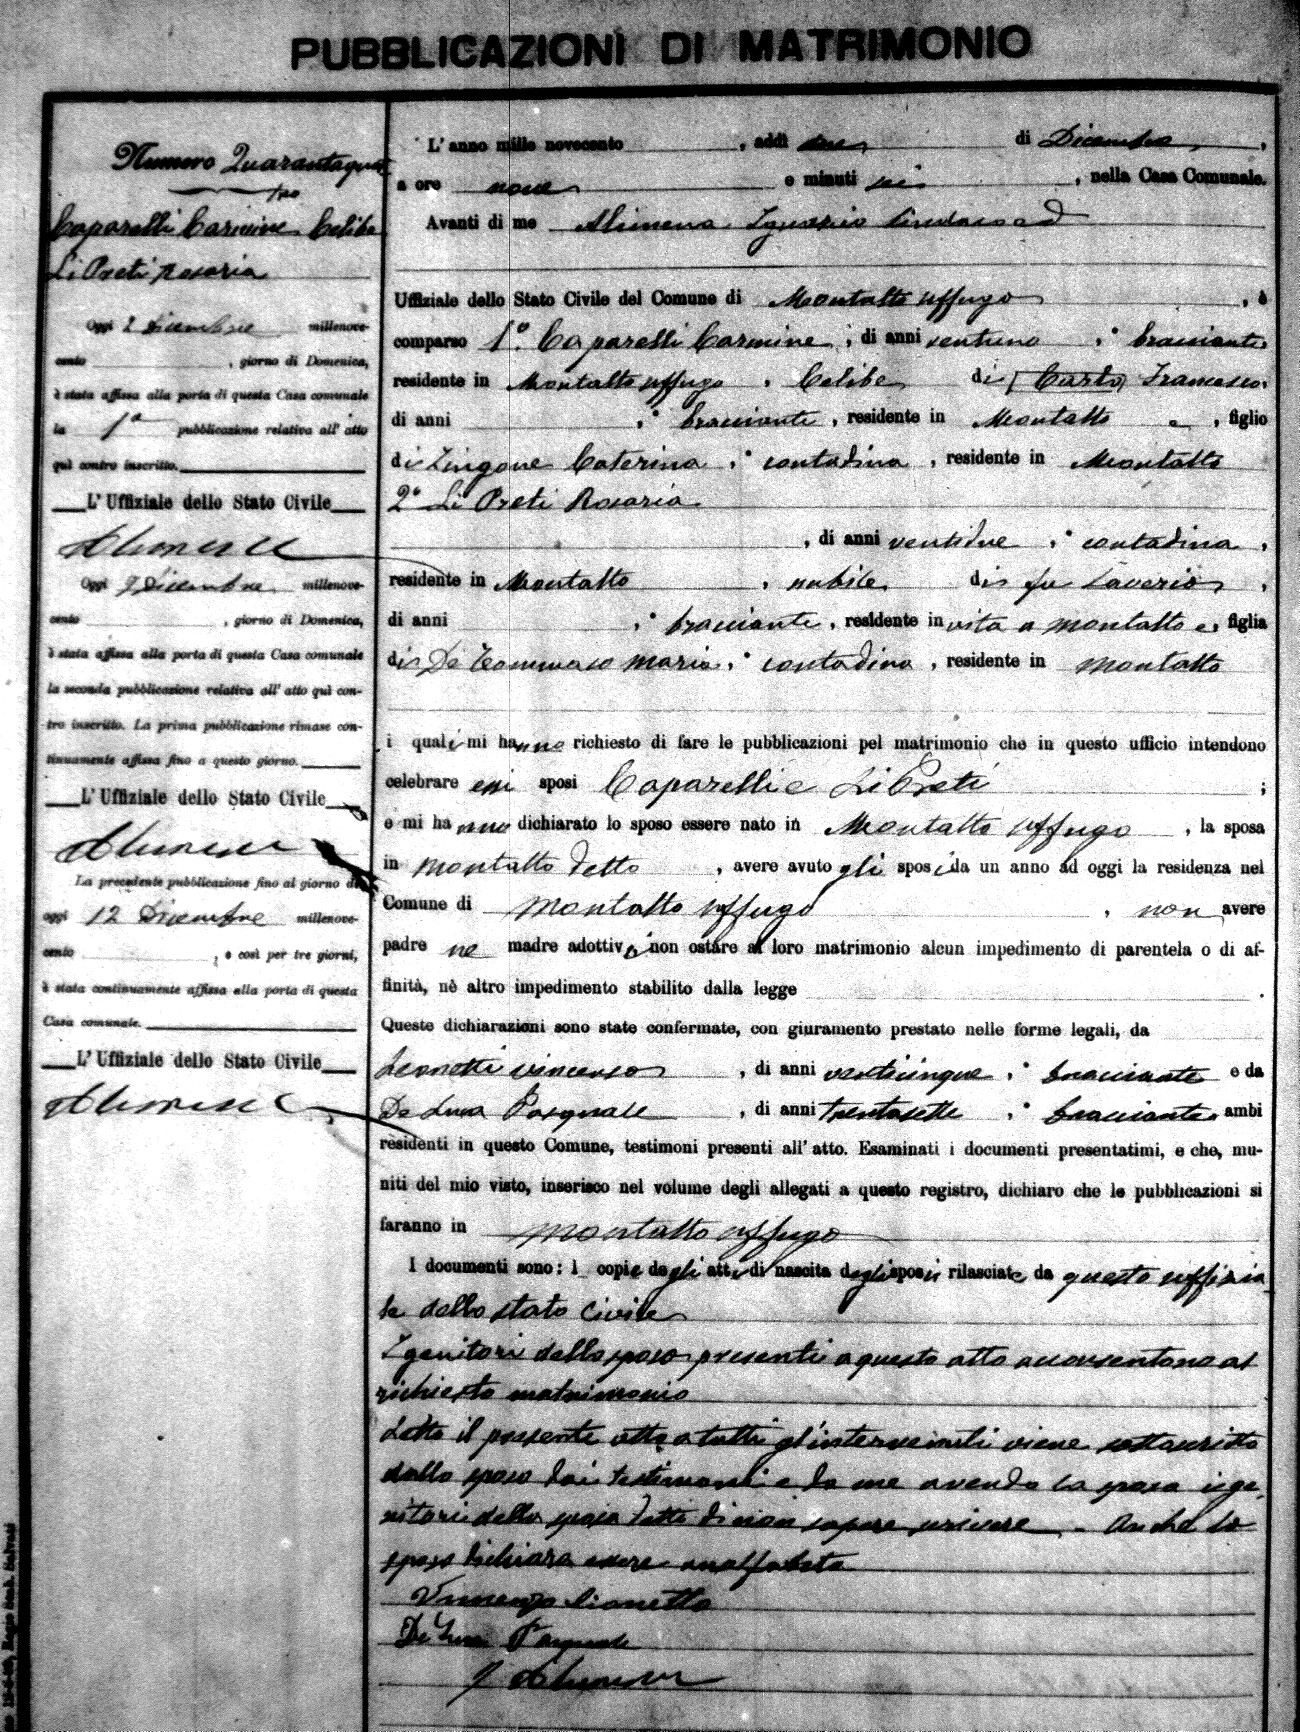 PUBBLICAZIONI DI MATRIMONIO
Numero Quarantaquat
tro
Caparelli Carmine Celibe
Li Preti Rosaria
Oggi 2 Dicembre millenove-
cento , giorno di Domenica,
è stata affissa alla porta di questa Casa comunale
la 1a pubblicazione relativa all' atto
quì contro inscritto.
L' Uffiziale dello Stato Civile
Alimena
Oggi 9 Dicembre millenove-
cento , giorno di Domenica,
è stata affissa alla porta di questa Casa comunale
la seconda pubblicazione relativa all' atto quì con-
tro inscritto. La prima pubblicazione rimase con-
tinuamente affissa fino a questo giorno.
L' Uffiziale dello Stato Civile
Alimena
La precedente pubblicazione fino al giorno di
oggi 12 Dicembre millenove-
cento , e così per tre giorni,
è stata continuamente affissa alla porta di questa
Casa comunale.
L' Uffiziale dello Stato Civile
Alimena
L' anno mille novecento , addì due di Dicembre ,
a ore nove e minuti sei , nella Casa Comunale.
Avanti di me Alimena Ignazio Sindaco ed
Uffiziale dello Stato Civile del Comune di Montalto Uffugo , è
comparso 1o. Caparelli Carmine , di anni ventuno , bracciante
residente in Montalto Uffugo , Celibe di (Carlo) Francesco,
di anni , bracciante , residente in Montalto e , figlio
di Zingone Caterina , contadina , residente in Montalto
2o Li Preti Rosaria
, di anni ventidue , contadina ,
residente in Montalto , nubile di fu Saverio ,
di anni , bracciante , residente in vita a Montalto e , figlia
di De Tommaso Maria , contadina , residente in Montalto
i quali mi hanno richiesto di fare le pubblicazioni pel matrimonio che in questo ufficio intendono
celebrare essi sposi Caparelli e Li Preti ;
e mi hanno dichiarato lo sposo essere nato in Montalto Uffugo , la sposa
in Montalto detto , avere avuto gli sposi da un anno ad oggi la residenza nel
Comune di Montalto Uffugo , non avere
padre ne madre adottivi, non ostare al loro matrimonio alcun impedimento di parentela o di af-
finità, nè altro impedimento stabilito dalla legge .
Queste dichiarazioni sono state confermate, con giuramento prestato nelle forme legali, da
Leonetti Vincenzo , di anni venticinque , bracciante e da
De Luca Pasquale , di anni trentasette , bracciante ambi
residenti in questo Comune, testimoni presenti all' atto. Esaminati i documenti presentatimi, e che, mu-
niti del mio visto, inserisco nel volume degli allegati a questo registro, dichiaro che le pubblicazioni si
faranno in Montalto Uffugo
I documenti sono: 1 copie degli atti di nascita degli sposi rilasciate da questo uffizia
le dello stato Civile
I genitori dello sposo presenti a questo atto acconsentono al
richiesto matrimonio
Letto il presente atto a tutti gl'intervenuti viene sottoscritto
dallo sposo dai testimoni e da me avendo la sposa i ge-
nitori dello sposo detto di non sapere scrivere. Anche lo
sposo dichiara essere analfabeta
Vincenzo Lionetto
De Luca Pasquale
I Alimena